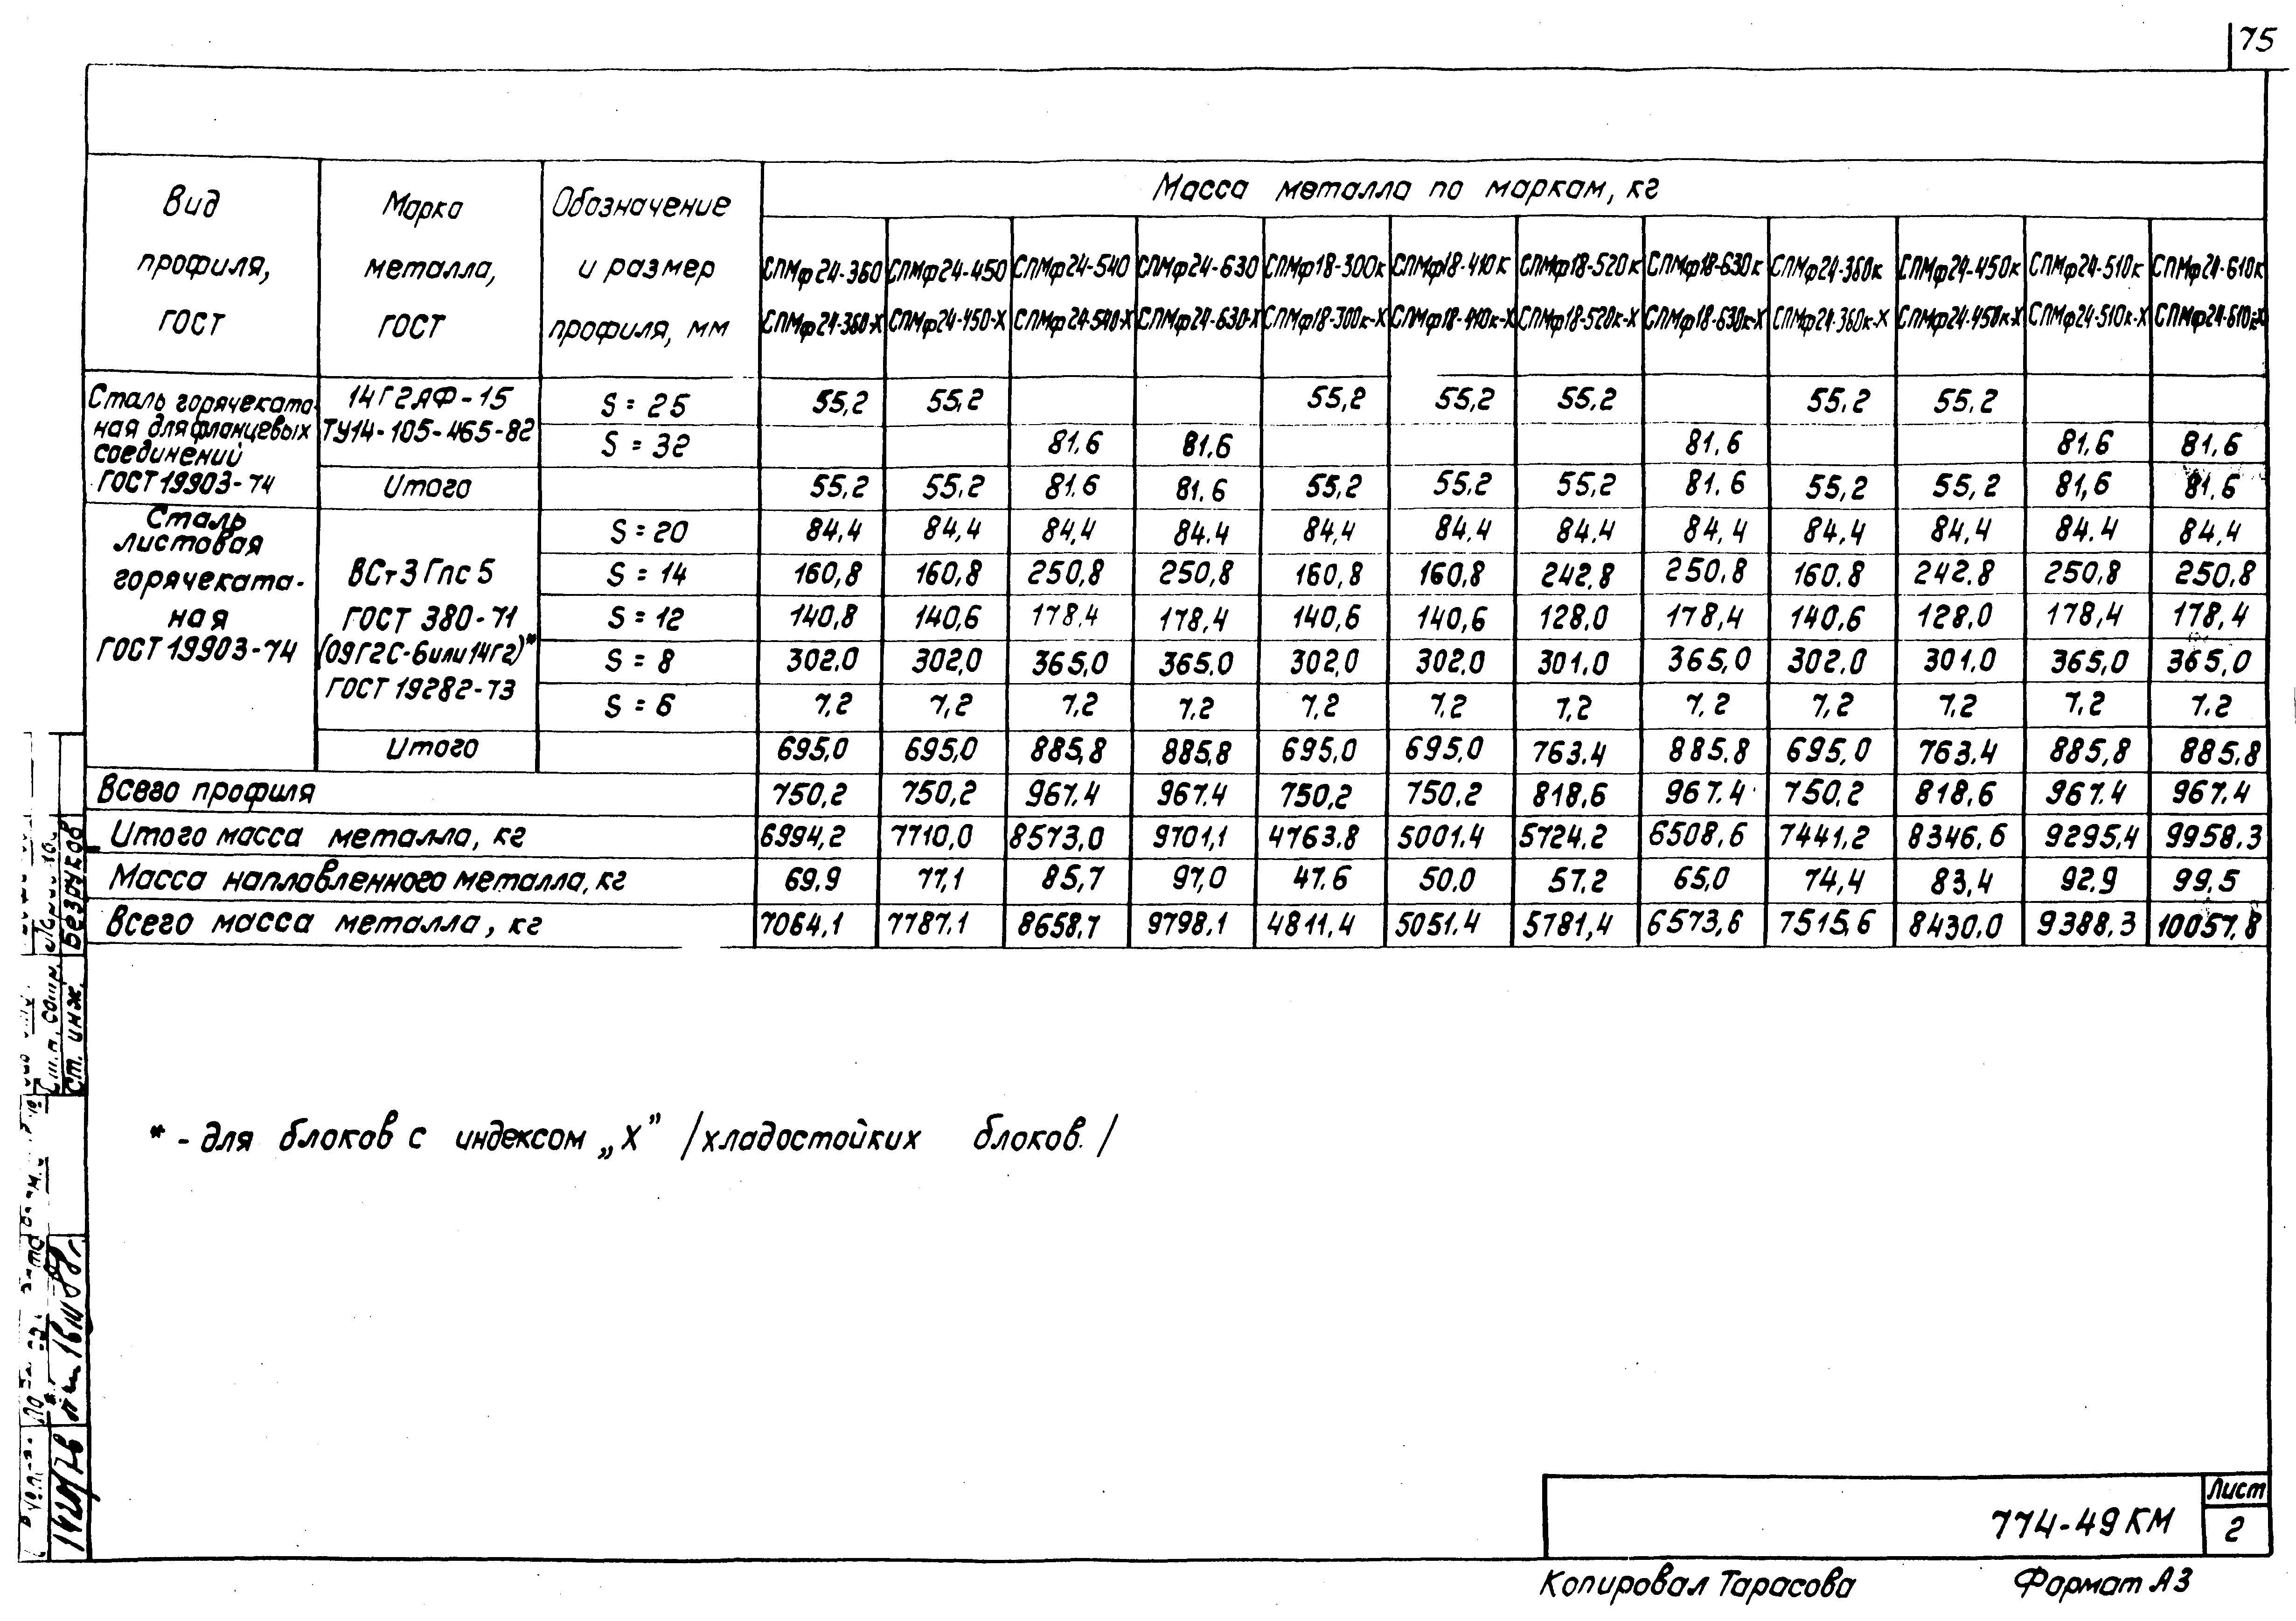 75
Вид профиля, ГОСТ | Марка металла, ГОСТ | Обозначение и размер профиля, мм | Масса металла по маркам, кг
СПМф24-360 | СПМф24-450 | СПМф24-540 | СПМф24-630 | СПМф18-300к | СПМф18-410к | СПМф18-520к | СПМф18-630к | СПМф24-360к | СПМф24-450к | СПМф24-510к | СПМф24-610к
СПМф24-360-Х | СПМф24-450-Х | СПМф24-540-Х | СПМф24-630-Х | СПМф18-300к-Х | СПМф18-410к-Х | СПМф18-520к-Х | СПМф18-630к-Х | СПМф24-360к-Х | СПМф24-450к-Х | СПМф24-510к-Х | СПМф24-610к-Х
Сталь горячеката-
ная для фланцевых
соединений
ГОСТ 19903-74
14Г2АФ-15
ТУ14-105-465-82
S = 25 | 55,2 | 55,2 | | | 55,2 | 55,2 | 55,2 | | 55,2 | 55,2 | |
S = 32 | | | 81,6 | 81,6 | | | | 81,6 | | | 81,6 | 81,6
Итого | 55,2 | 55,2 | 81,6 | 81,6 | 55,2 | 55,2 | 55,2 | 81,6 | 55,2 | 55,2 | 81,6 | 81,6
Сталь
листовая
горячеката-
ная
ГОСТ 19903-74
ВСт3Гпс5
ГОСТ 380-71
(09Г2С-6 или 14Г2)*
ГОСТ 19282-73
S = 20 | 84,4 | 84,4 | 84,4 | 84,4 | 84,4 | 84,4 | 84,4 | 84,4 | 84,4 | 84,4 | 84,4 | 84,4
S = 14 | 160,8 | 160,8 | 250,8 | 250,8 | 160,8 | 160,8 | 242,8 | 250,8 | 160,8 | 242,8 | 250,8 | 250,8
S = 12 | 140,8 | 140,6 | 178,4 | 178,4 | 140,6 | 140,6 | 128,0 | 178,4 | 140,6 | 128,0 | 178,4 | 178,4
S = 8 | 302,0 | 302,0 | 365,0 | 365,0 | 302,0 | 302,0 | 301,0 | 365,0 | 302,0 | 301,0 | 365,0 | 365,0
S = 6 | 7,2 | 7,2 | 7,2 | 7,2 | 7,2 | 7,2 | 7,2 | 7,2 | 7,2 | 7,2 | 7,2 | 7,2
Итого | 695,0 | 695,0 | 885,8 | 885,8 | 695,0 | 695,0 | 763,4 | 885,8 | 695,0 | 763,4 | 885,8 | 885,8
Всего профиля | 750,2 | 750,2 | 967,4 | 967,4 | 750,2 | 750,2 | 818,6 | 967,4 | 750,2 | 818,6 | 967,4 | 967,4
Итого масса металла, кг | 6994,2 | 7710,0 | 8573,0 | 9701,1 | 4763,8 | 5001,4 | 5724,2 | 6508,6 | 7441,2 | 8346,6 | 9295,4 | 9958,3
Масса наплавленного металла, кг | 69,9 | 77,1 | 85,7 | 97,0 | 47,6 | 50,0 | 57,2 | 65,0 | 74,4 | 83,4 | 92,9 | 99,5
Всего масса металла, кг | 7064,1 | 7787,1 | 8658,7 | 9798,1 | 4811,4 | 5051,4 | 5781,4 | 6573,6 | 7515,6 | 8430,0 | 9388,3 | 10057,8
* - для блоков с индексом „Х” /хладостойких блоков./
Ст. инж. Безруков
774-49 КМ
Лист
2
Копировал Тарасова
Формат А3